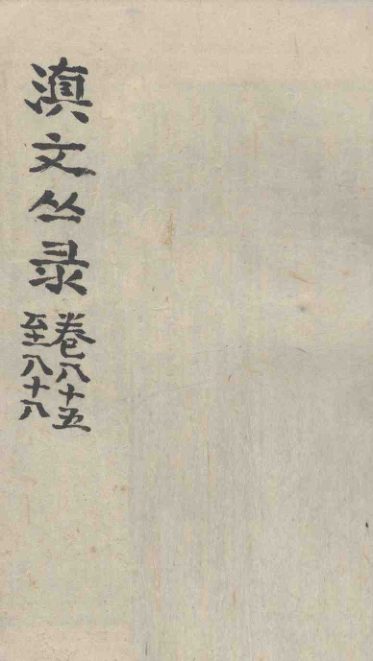 滇文丛录
卷八十五
至八十八